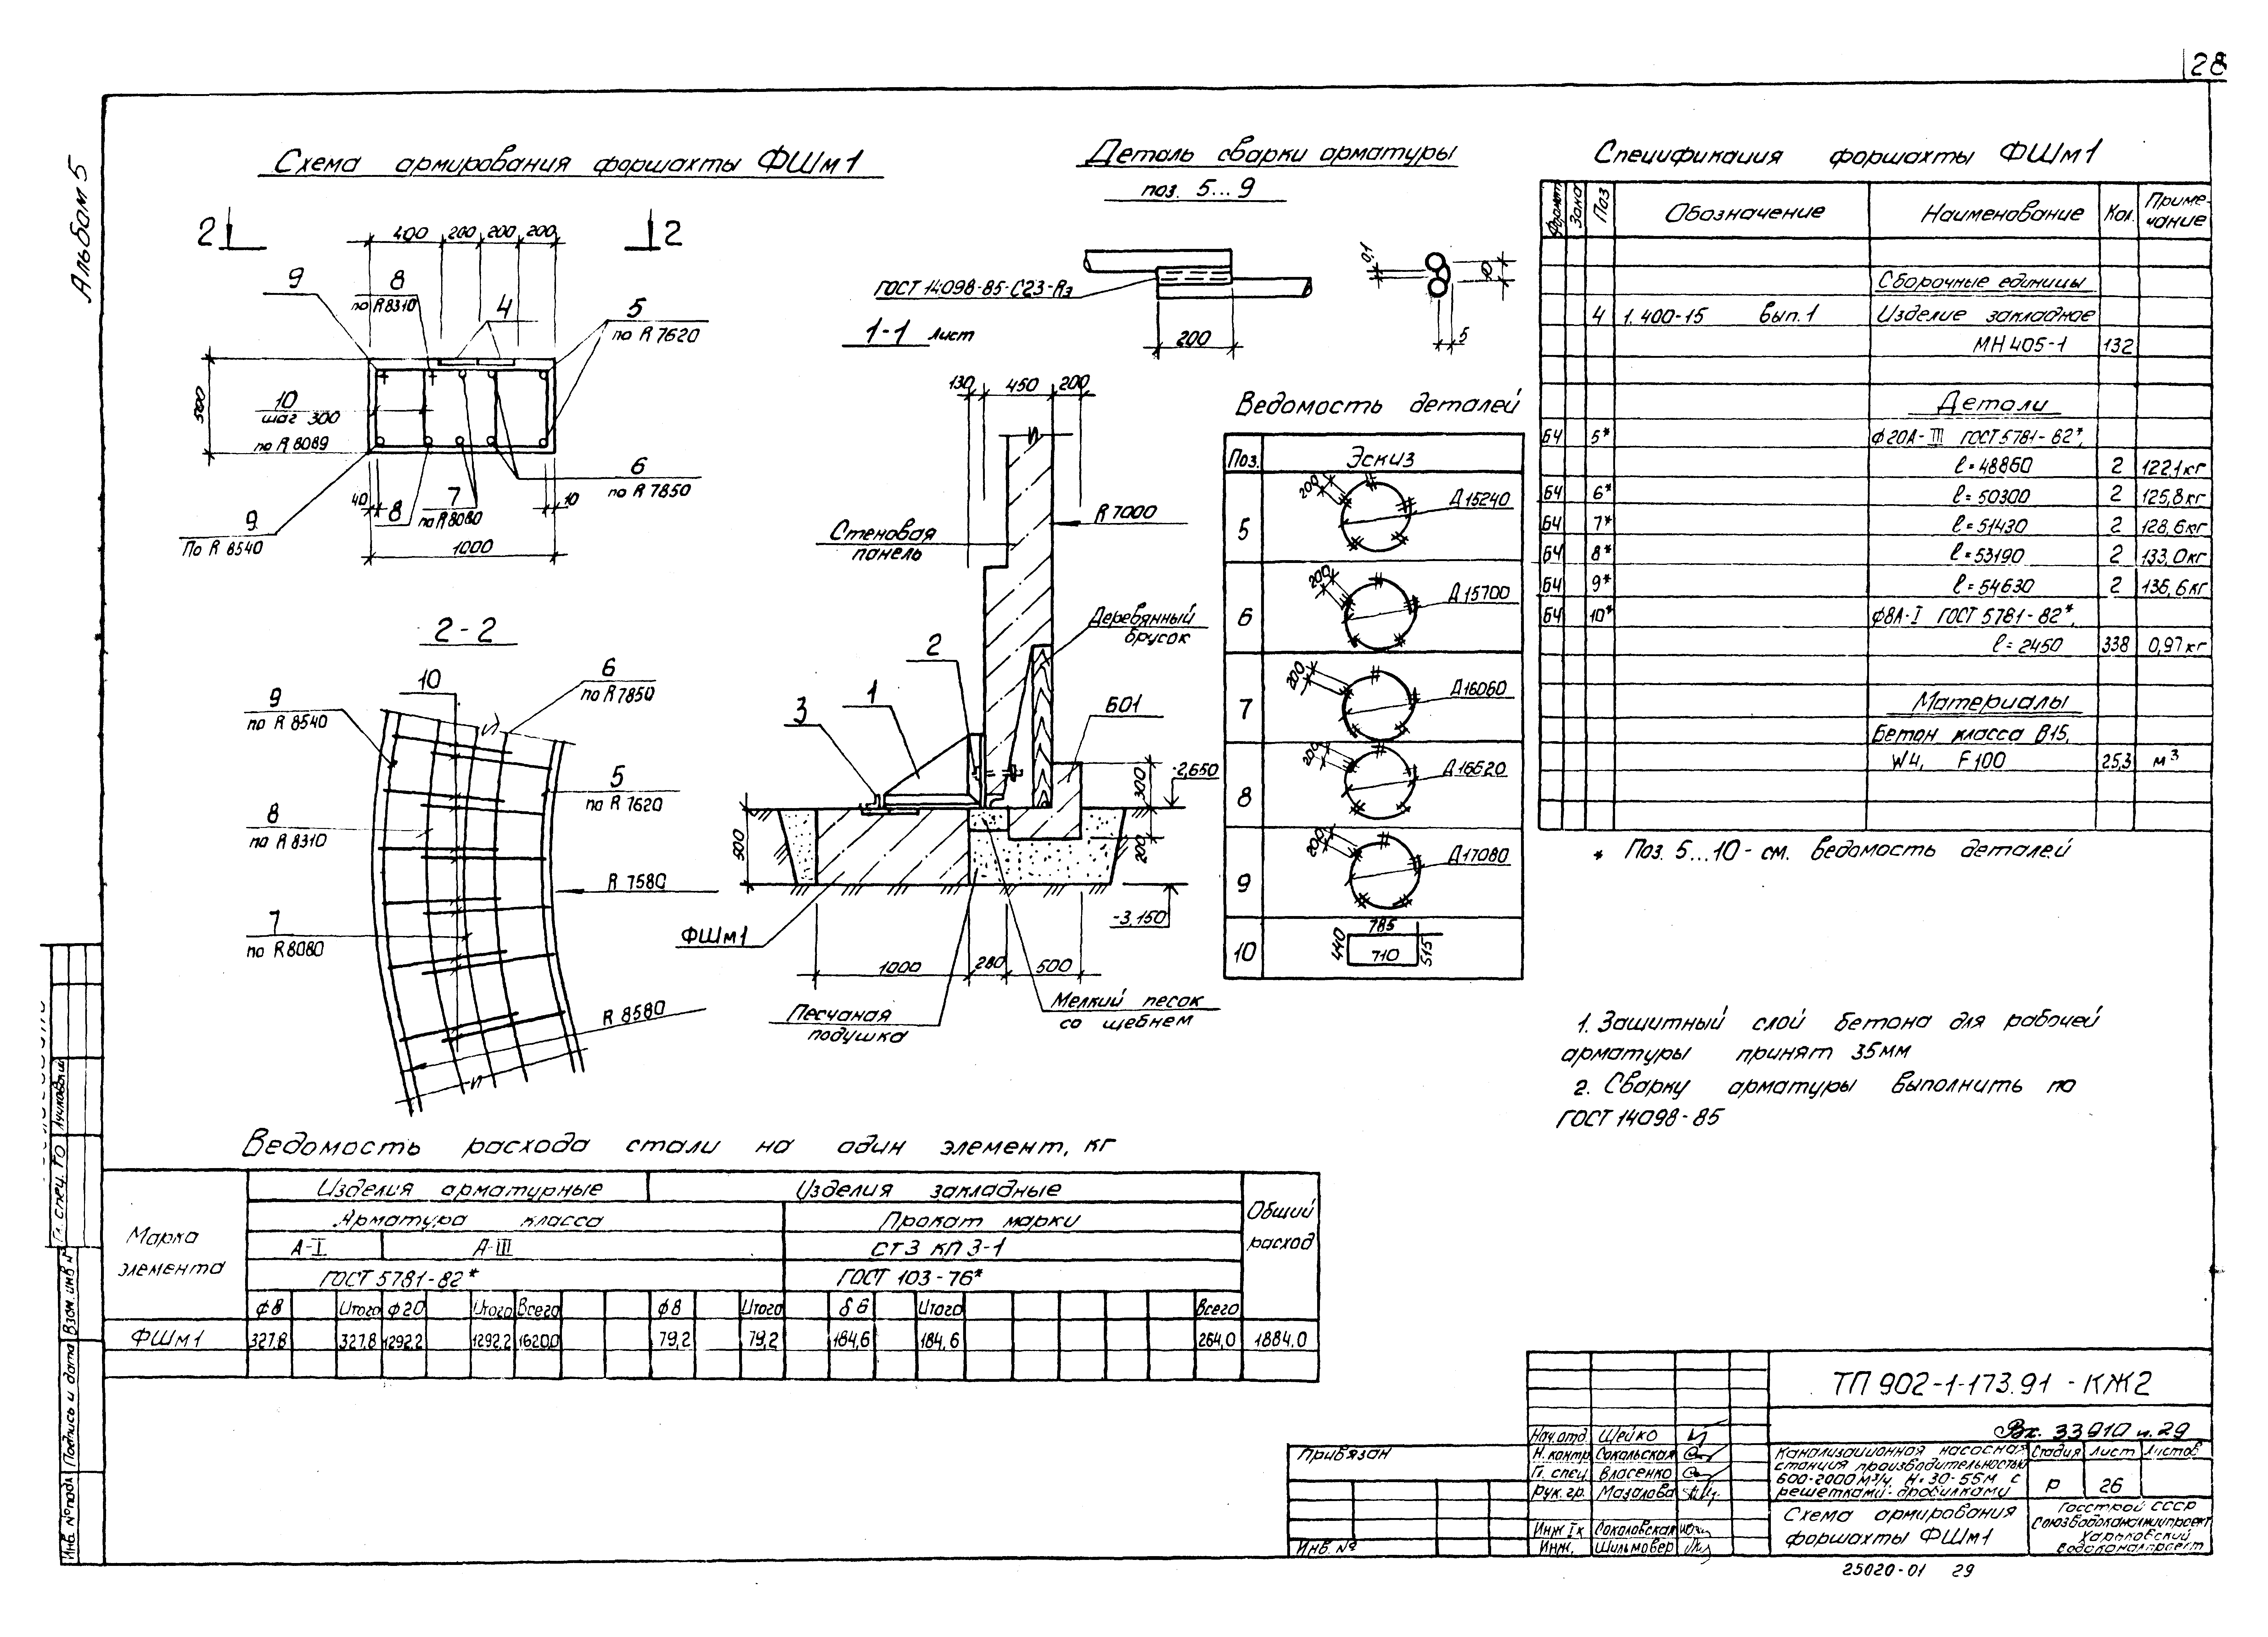 28
Альбом 5
Схема армирования форшахты ФШм1
2 2
400 200 200 200
9
8
по R8310
4
5
по R 7620
500
10
шаг 300
по R 8089
6
по R 7850
40
8
7
по R8080
10
9
По R 8540
1000
2-2
10
6
по R7850
9
по R 8540
5
по R 7620
8
по R 8310
R 7580
7
по R8080
R 8580
Деталь сварки арматуры
поз. 5...9
ГОСТ 14098-85-С23-Рэ
200
0,1
5
1-1 Лист
130 450 200
R 7000
Стеновая
панель
Деревянный
брусок
2
1
3
Б01
-2,650
300
500
200
-3,150
ФШм1
1000 280 500
Песчаная
подушка
Мелкий песок
со щебнем
Ведомость деталей
Поз. Эскиз
5 200 Д15240
6 200 Д15700
7 200 Д16060
8 200 Д16620
9 200 Д17080
10 440 785 710 515
Спецификация форшахты ФШм1
Формат Зона Поз Обозначение Наименование Кол. Приме-
чание
Сборочные единицы
4 1.400-15 Вып.1 Изделие закладное
МН 405-1 132
Детали
БЧ 5* ф20А-III ГОСТ 5781-82*,
ℓ=48860 2 122,1кг
БЧ 6* ℓ=50300 2 125,8кг
БЧ 7* ℓ=51430 2 128,6кг
БЧ 8* ℓ=53190 2 133,0кг
БЧ 9* ℓ=54630 2 136,6кг
БЧ 10* ф8А-I ГОСТ 5781-82*,
ℓ=2450 338 0,97кг
Материалы
Бетон класса В15,
W4, F100 25,3 м³
* Поз. 5...10-см. ведомость деталей
1. Защитный слой бетона для рабочей
арматуры принят 35мм
2. Сварку арматуры выполнить по
ГОСТ 14098-85
Ведомость расхода стали на один элемент, кг
Марка
элемента
Изделия арматурные Изделия закладные Общий
расход
Арматура класса Прокат марки
А-I А-III Ст3 кп 3-1
ГОСТ 5781-82* ГОСТ 103-76*
ф8 Итого ф20 Итого Всего ф8 Итого δ6 Итого Всего
ФШм1 327,8 327,8 1292,2 1292,2 1620,0 79,2 79,2 184,6 184,6 264,0 1884,0
Гл. спец. ТО Лучковский
Инв. № подл Подпись и дата Взам. инв №
Привязан
Инв. №
ТП 902-1-173.91 - КЖ2
Вх. 33910 ч.29
Нач.отд Шейко
Н. контр Сокольская
Гл. спец Власенко
Рук. гр. Мазалова
Инж Iк Соколовская
Инж. Шильмовер
Канализационная насосная
станция производительностью
600-2000м³/ч, Н=30-55м с
решетками-дробилками
Стадия Лист Листов
Р 26
Схема армирования
форшахты ФШм1
Госстрой СССР
Союзводоканалниипроект
Харьковский
Водоканалпроект
25020-01 29